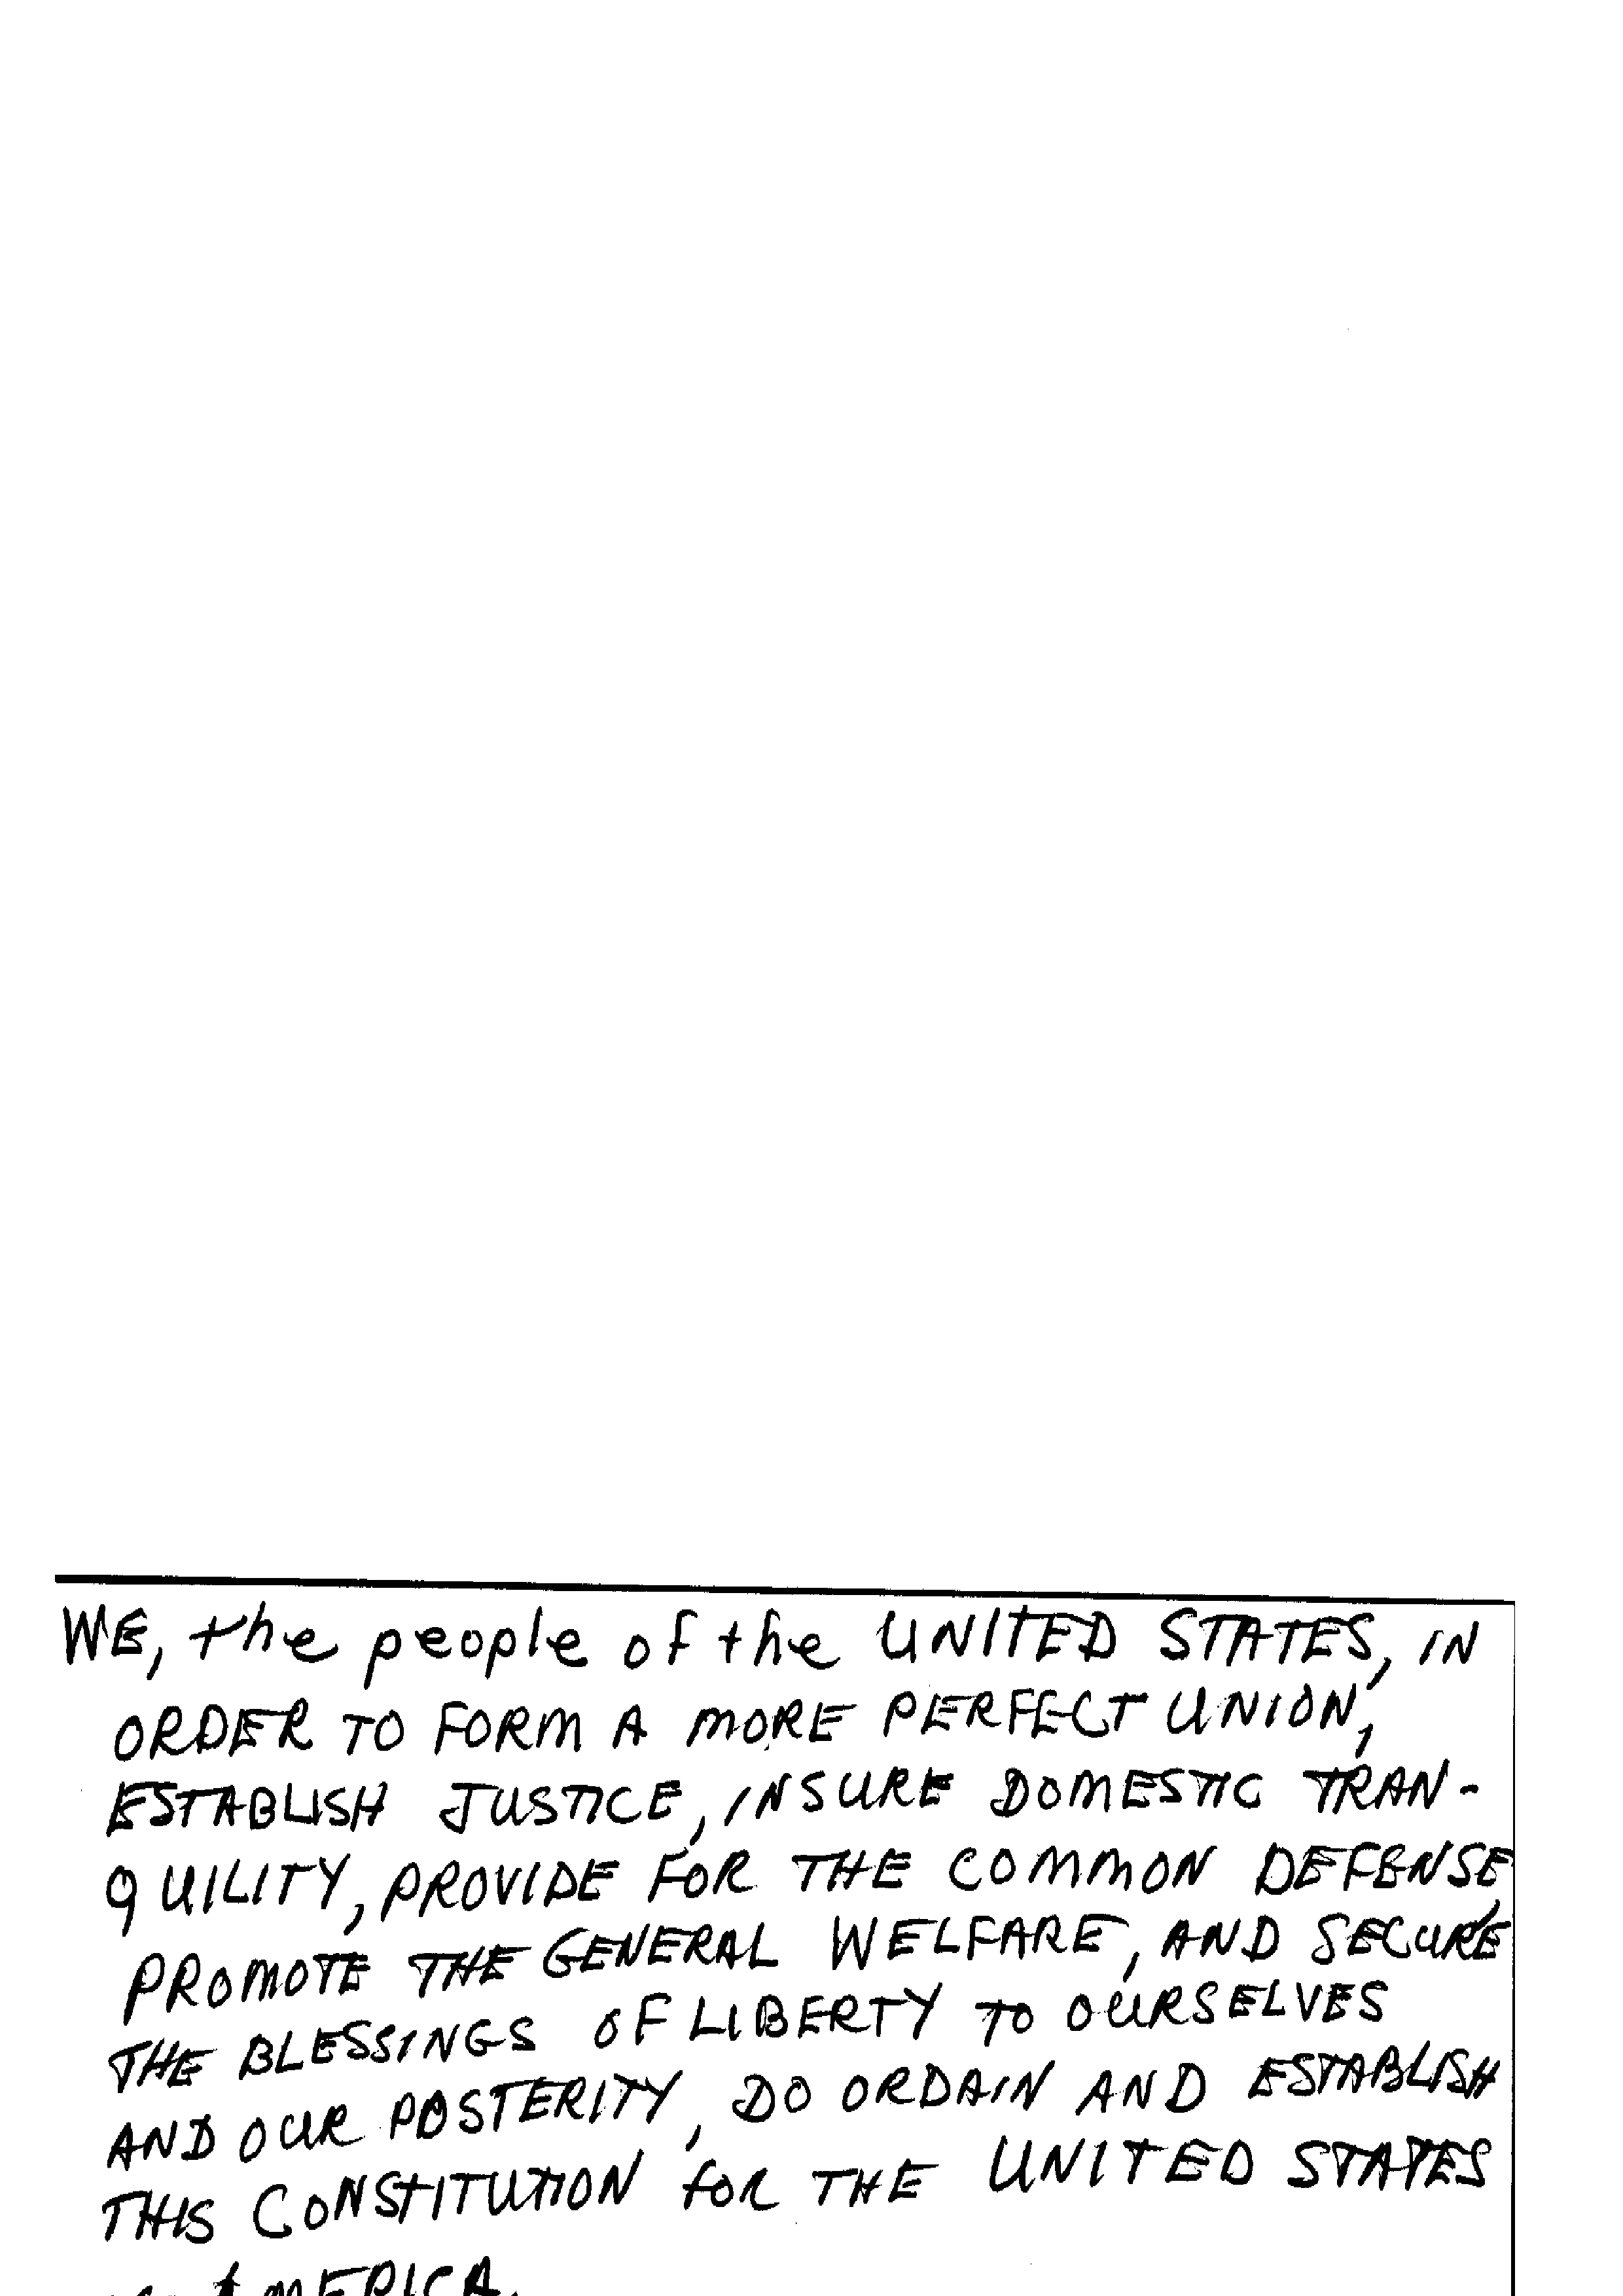 WE, the people of the UNITED STATES, IN
ORDER TO FORM A MORE PERFECT UNION,
ESTABLISH JUSTICE, INSURE DOMESTIC TRAN-
QUILITY, PROVIDE FOR THE COMMON DEFENSE,
PROMOTE THE GENERAL WELFARE, AND SECURE
THE BLESSINGS OF LIBERTY TO OURSELVES
AND OUR POSTERITY, DO ORDAIN AND ESTABLISH
THIS CONSTITUTION FOR THE UNITED STATES
AMERICA.